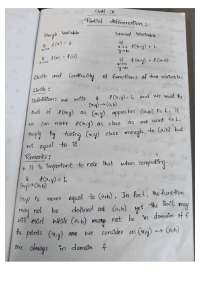 Partial differentiation:
Single Variable Several Variable
f(x) = L
f(x,y) = L
f(x) = f(a)
f(x,y) = f(a,b)
Limits and Continuity of functions of two variables.
Limits:
Definition: we write f(x,y) = L and we read the
(x,y)→(a,b)
limit of f(x,y) as (x,y) approaches (a,b) is L, if
we can make f(x,y) as close as we want to L,
simply by taking (x,y) close enough to (a,b) but
not equal to it
Remarks:
It is important to note that when computing
f(x,y) = L
(x,y)→(a,b)
(x,y) is never equal to (a,b). In fact, the function
may not be defined at (a,b) yet the limit may
still exist while (a,b) may not be in domain of f
the points (x,y) are we consider as (x,y) → (a,b)
are always in domain f